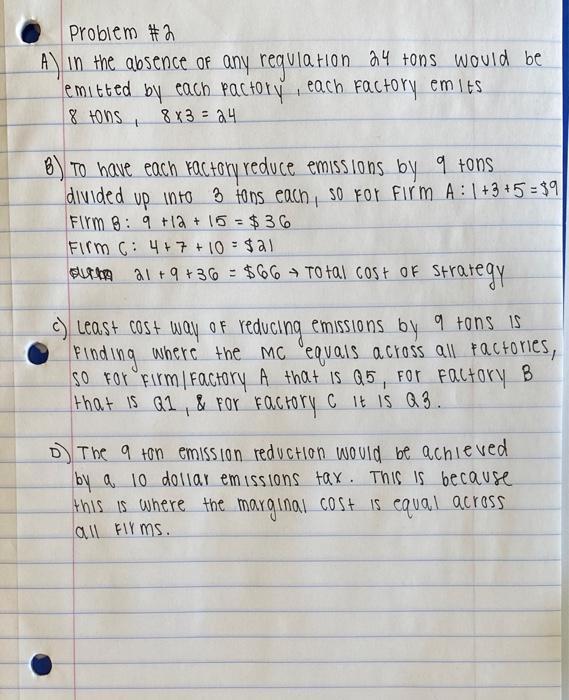 Problem #2
A) In the absence of any regulation 24 tons would be
emitted by each factory, each factory emits
8 tons, 8x3 = 24
B) To have each factory reduce emissions by 9 tons
divided up into 3 tons each, so for Firm A: 1+3+5=$9
Firm B: 9 +12 + 15 = $36
Firm C: 4+7+10 = $21
21 + 9 + 36 = $66 → Total cost of strategy
C) Least cost way of reducing emissions by 9 tons is
finding where the MC equals across all factories,
so for firm/factory A that is Q5, for factory B
that is Q1, & for factory C it is Q3.
D) The 9 ton emission reduction would be achieved
by a 10 dollar emissions tax. This is because
this is where the marginal cost is equal across
all firms.